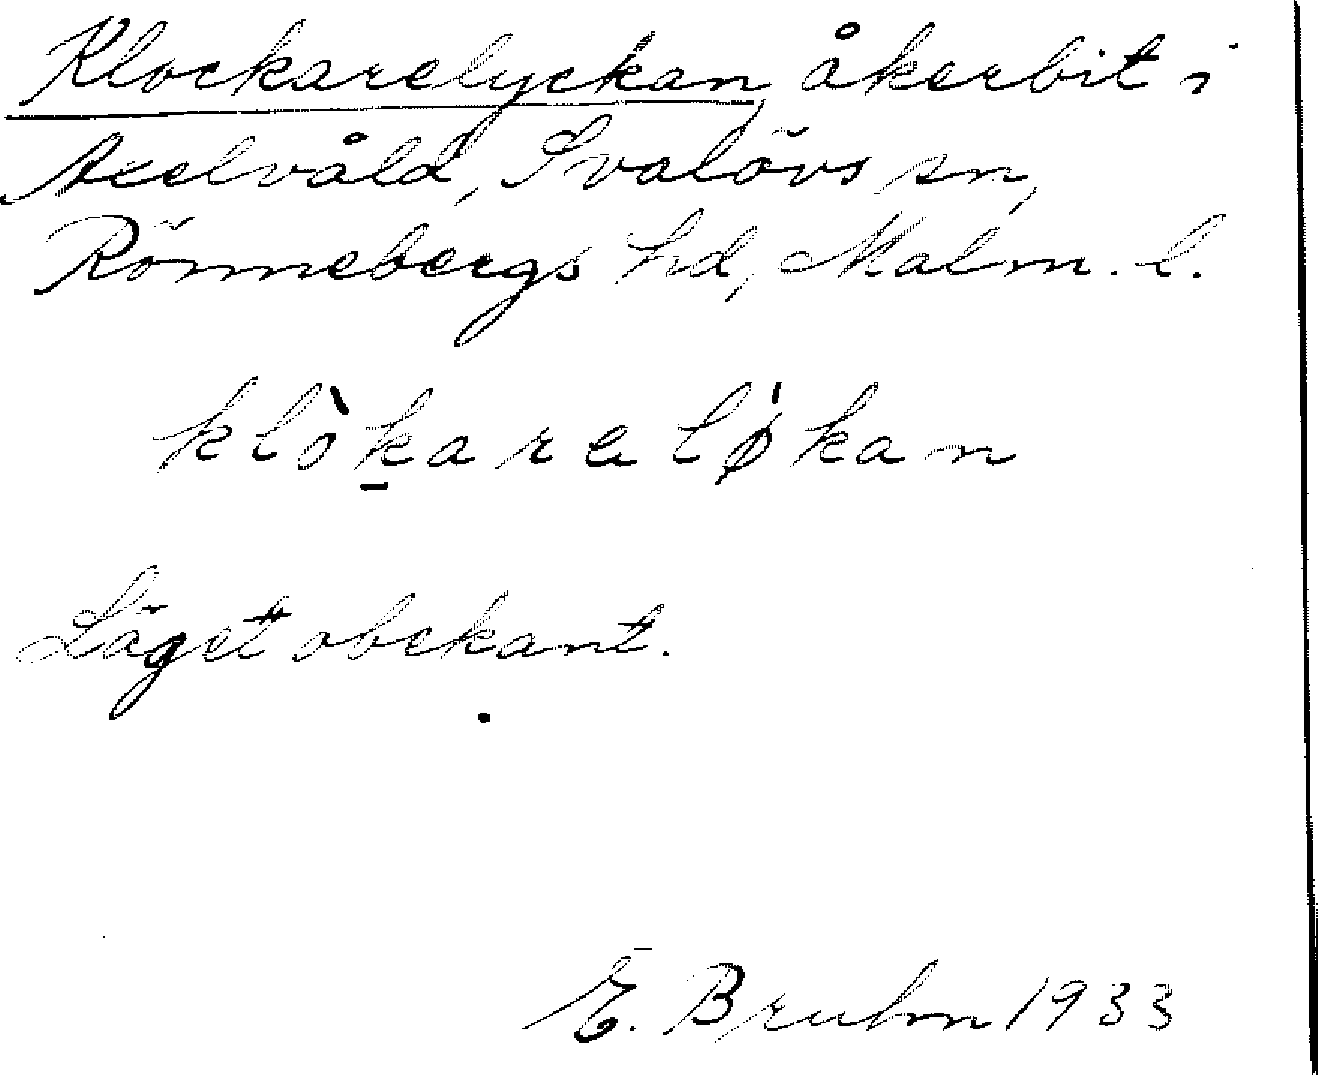 Klockarelyckan, åkerbit i
Axelvåld, Svalövs sn,
Rönnebergs hd, Malm. l.
klòk̠arelǿkan
Läget obekant.
E. Bruhn 1933